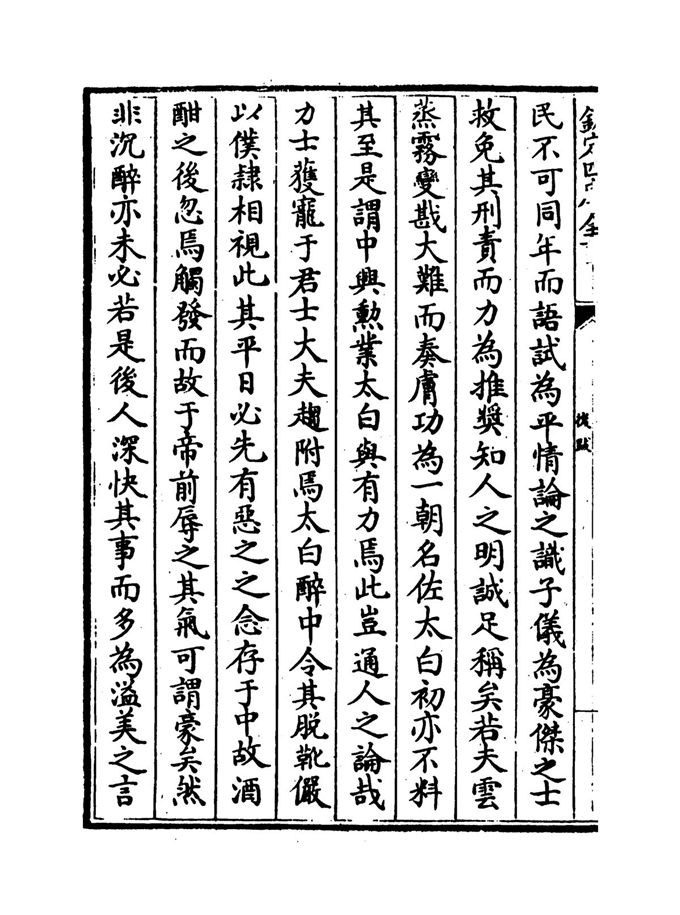 民不可同年而語試為平情論之識子儀為豪傑之士
救免其刑責而力為推奬知人之明誠足稱矣若夫雲
蒸霧變戡大難而奏膚功為一朝名佐太白初亦不料
其至是謂中興勲業太白與有力焉此豈通人之論哉
力士獲寵于君士大夫趨附焉太白醉中令其脱靴儼
以僕隷相視此其平日必先有惡之之念存于中故酒
酣之後忽焉觸發而故于帝前辱之其氣可謂豪矣然
非沉醉亦未必若是後人深快其事而多為溢美之言